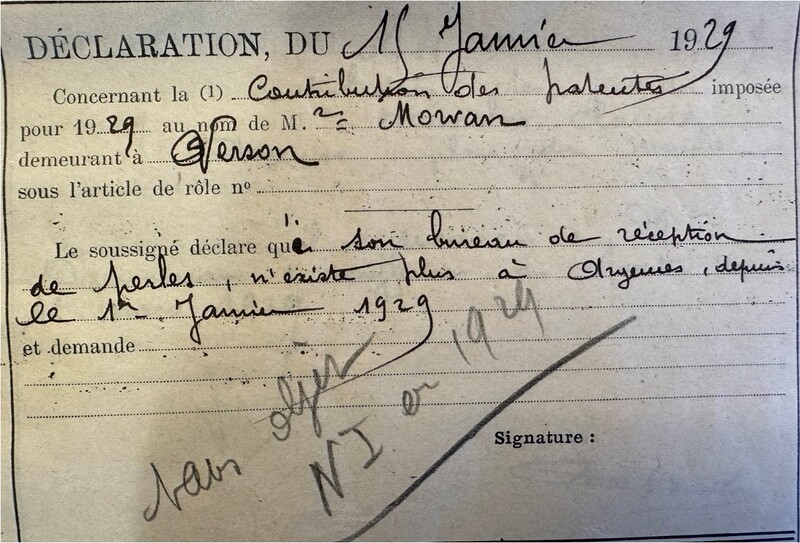 DÉCLARATION, DU 15 Janvier 1929
Concernant la (1) Contribution des patentes imposée
pour 1929 au nom de M.r Morvan
demeurant à Verson
sous l'article de rôle nº
Le soussigné déclare que son bureau de réception
de perles, n'existe plus à Argences, depuis
le 1er Janvier 1929
et demande
Sans objet
NI en 1929
Signature :